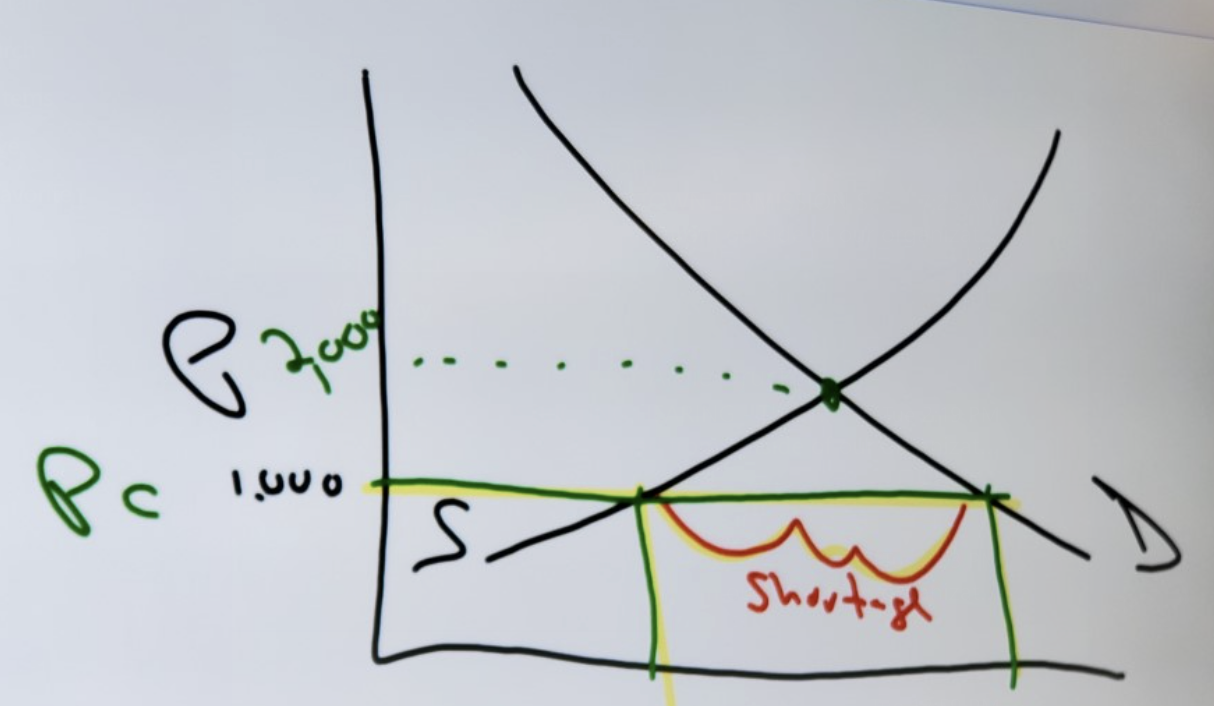 P 2,000
Pc 1.000
S
D
Shortage